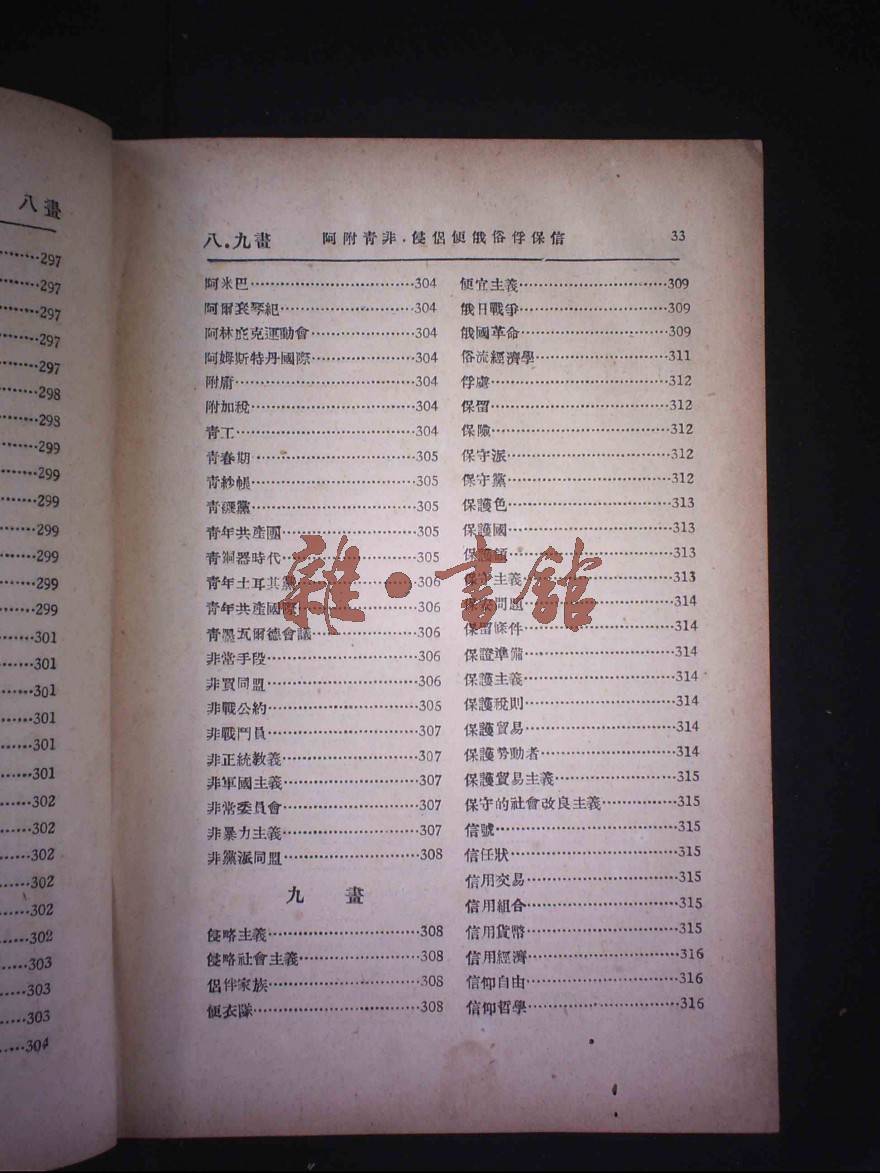 八畫
297
297
297
297
297
298
298
299
299
299
299
299
299
299
301
301
301
301
301
301
302
302
302
302
302
302
303
303
303
304
八.九畫 阿附青非.侵侶便俄俗俘保信 33
阿米巴 304
阿爾袞琴紀 304
阿林庇克運動會 304
阿姆斯特丹國際 304
附庸 304
附加稅 304
青工 304
青春期 305
青紗帳 305
青年共產團 305
青銅器時代 305
青年土耳其黨 306
青年共產國際 306
青墨瓦爾德會議 306
非常手段 306
非買同盟 306
非戰公約 306
非戰鬥員 307
非正統教義 307
非軍國主義 307
非常委員會 307
非暴力主義 307
非黨派同盟 308
九 畫
侵略主義 308
侵略社會主義 308
侶伴家族 308
便衣隊 308
便宜主義 309
俄日戰爭 309
俄國革命 309
俗流經濟學 311
俘虜 312
保留 312
保險 312
保守派 312
保守黨 312
保護色 313
保護國 313
保護領 313
保守主義 313
問題 314
保留條件 314
保證準備 314
保護主義 314
保護稅則 314
保護貿易 314
保護勞動者 314
保護貿易主義 315
保守的社會改良主義 315
信號 315
信任狀 315
信用交易 315
信用組合 315
信用貨幣 315
信用經濟 316
信仰自由 316
信仰哲學 316
雜·書館